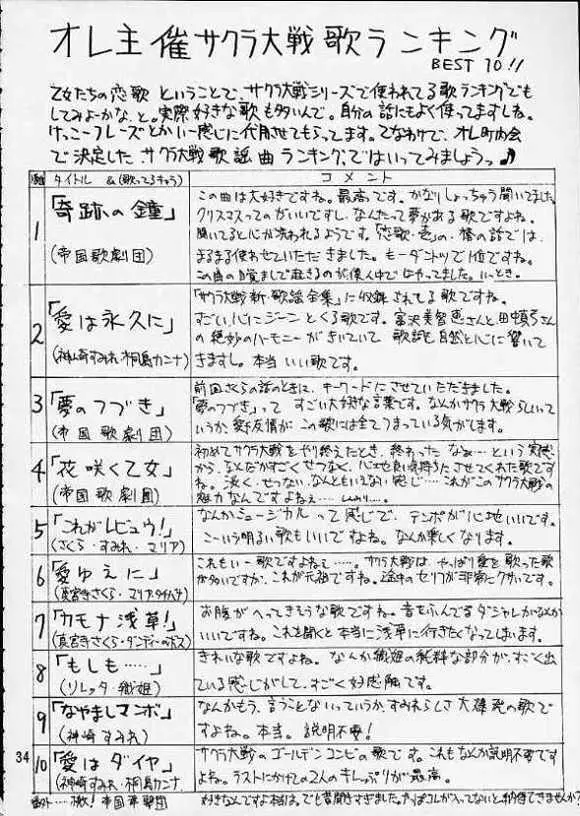 オレ主催サクラ大戦歌ランキング
BEST 10!!
乙女たちの恋歌 ということで、サクラ大戦シリーズで使われてる歌ランキングでも
してみよーかな、と。実際好きな歌も多いんで。自分の話にもよく使ってますしね。
けっこーフレーズとかいー感じに代用させてもらってます。てなわけで、オレ町内会
で決定した サクラ大戦歌謡曲ランキング、ではいってみましょうっ♪
タイトル &(歌ってるキャラ)
コメント
1
「奇跡の鐘」
(帝国歌劇団)
この曲は大好きですね。最高です。かなりしょっちゅう聞いてました。
クリスマスってのがいいですし、なんたって夢がある歌ですよね。
聞いてると心が洗われるようです。「恋歌・壱」の、椿の話では、
まるまる使わせていただきました。もーダントツで1位ですね。
2
「愛は永久に」
(神崎すみれ・桐島カンナ)
「サクラ大戦 新・歌謡全集」に収録されてる歌ですね。
すごい心にジーンとくる歌です。富沢美智恵さんと田中真弓さん
の絶妙のハーモニーがきいていて 歌詞も自然と心に響いて
きますし。本当 いい歌です。
3
「夢のつづき」
(帝国歌劇団)
前回さくらの話のときに、キーワードにさせていただきました。
「夢のつづき」って すごい大好きな言葉です。なんかサクラ大戦らしいって
いうか、愛と友情が この歌には全てつまっている気がします。
4
「花咲く乙女」
(帝国歌劇団)
初めてサクラ大戦をやり終えたとき、終わった なぁ…という実感
から、なんだかすごくせつなく、心地良い気持ちにさせてくれた歌です
ね。淡く、せつない、なんともいえない感じ……これがこのサクラ大戦の
魅力なんですよねぇ…
5
「これがレビュウ!」
(さくら・すみれ・マリア)
なんかミュージカルって感じで、テンポが心地いいです。
こーいう明るい歌もいいですよね。なんか楽しくなります。
6
「愛ゆえに」
(真宮寺さくら・マリア・タチバナ)
これもいー歌ですよねぇ……。サクラ大戦は、やっぱり愛を歌った歌
が多いですが、これが元祖ですね。途中のセリフが非常にクサいです。
7
「カモナ浅草!」
(真宮寺さくら・ダンディーのボス)
お腹がへってきそうな歌ですね。音をふんでるダジャレかなんか
いいですね。これを聞くと本当に浅草に行きたくなってしまいます。
8
「もしも……」
(ソレッタ・織姫)
きれいな歌ですよね。なんか織姫の純粋な部分が、すごく出
ている感じがして、すごく好感触です。
9
「なやましマンボ」
(神崎すみれ)
なんかもう、言うことないっていうか、すみれらしさ大爆発の歌で
すよね。本当。説明不要!
34
10
「愛はダイヤ」
(神崎すみれ・桐島カンナ)
サクラ大戦のゴールデンコンビの歌です。これもなんか説明不要です
よね。ラストにかけての2人のキレっぷりが最高。
番外……檄!帝国華撃団
好きなんですよ本当は。でも昔聞きすぎました。やっぱコレが入ってないと納得できませんか?